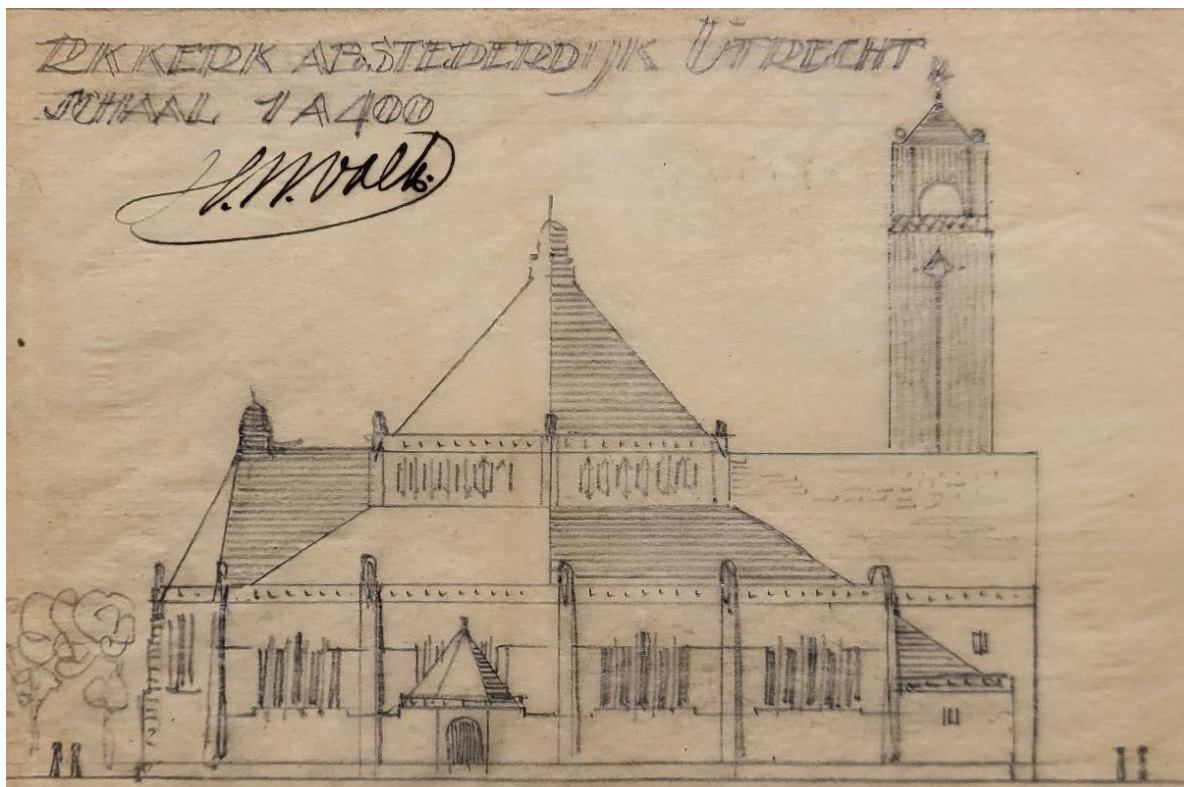 RK KERK ABSTEDERDIJK UTRECHT
SCHAAL 1 A 400
H.W. Valk.